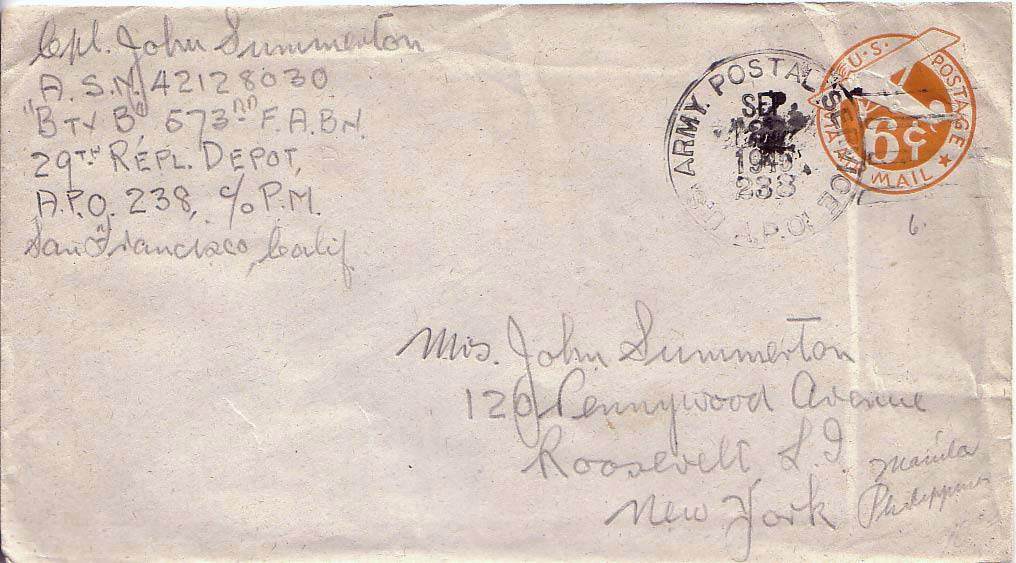 Cpl. John Summerton
A.S.N. 42128030
"Bty B", 673rd F.A.BN.
29TH REPL. DEPOT,
A.P.O. 238, c/o P.M.
San Francisco, Calif
U.S. ARMY. POSTAL SERVICE
SEP
1945
238
A.P.O.
U.S. POSTAGE
VIA AIR MAIL
6¢
6.
Mrs. John Summerton
120 Pennywood Avenue
Roosevelt L.I.
New York
Manila
Philippines